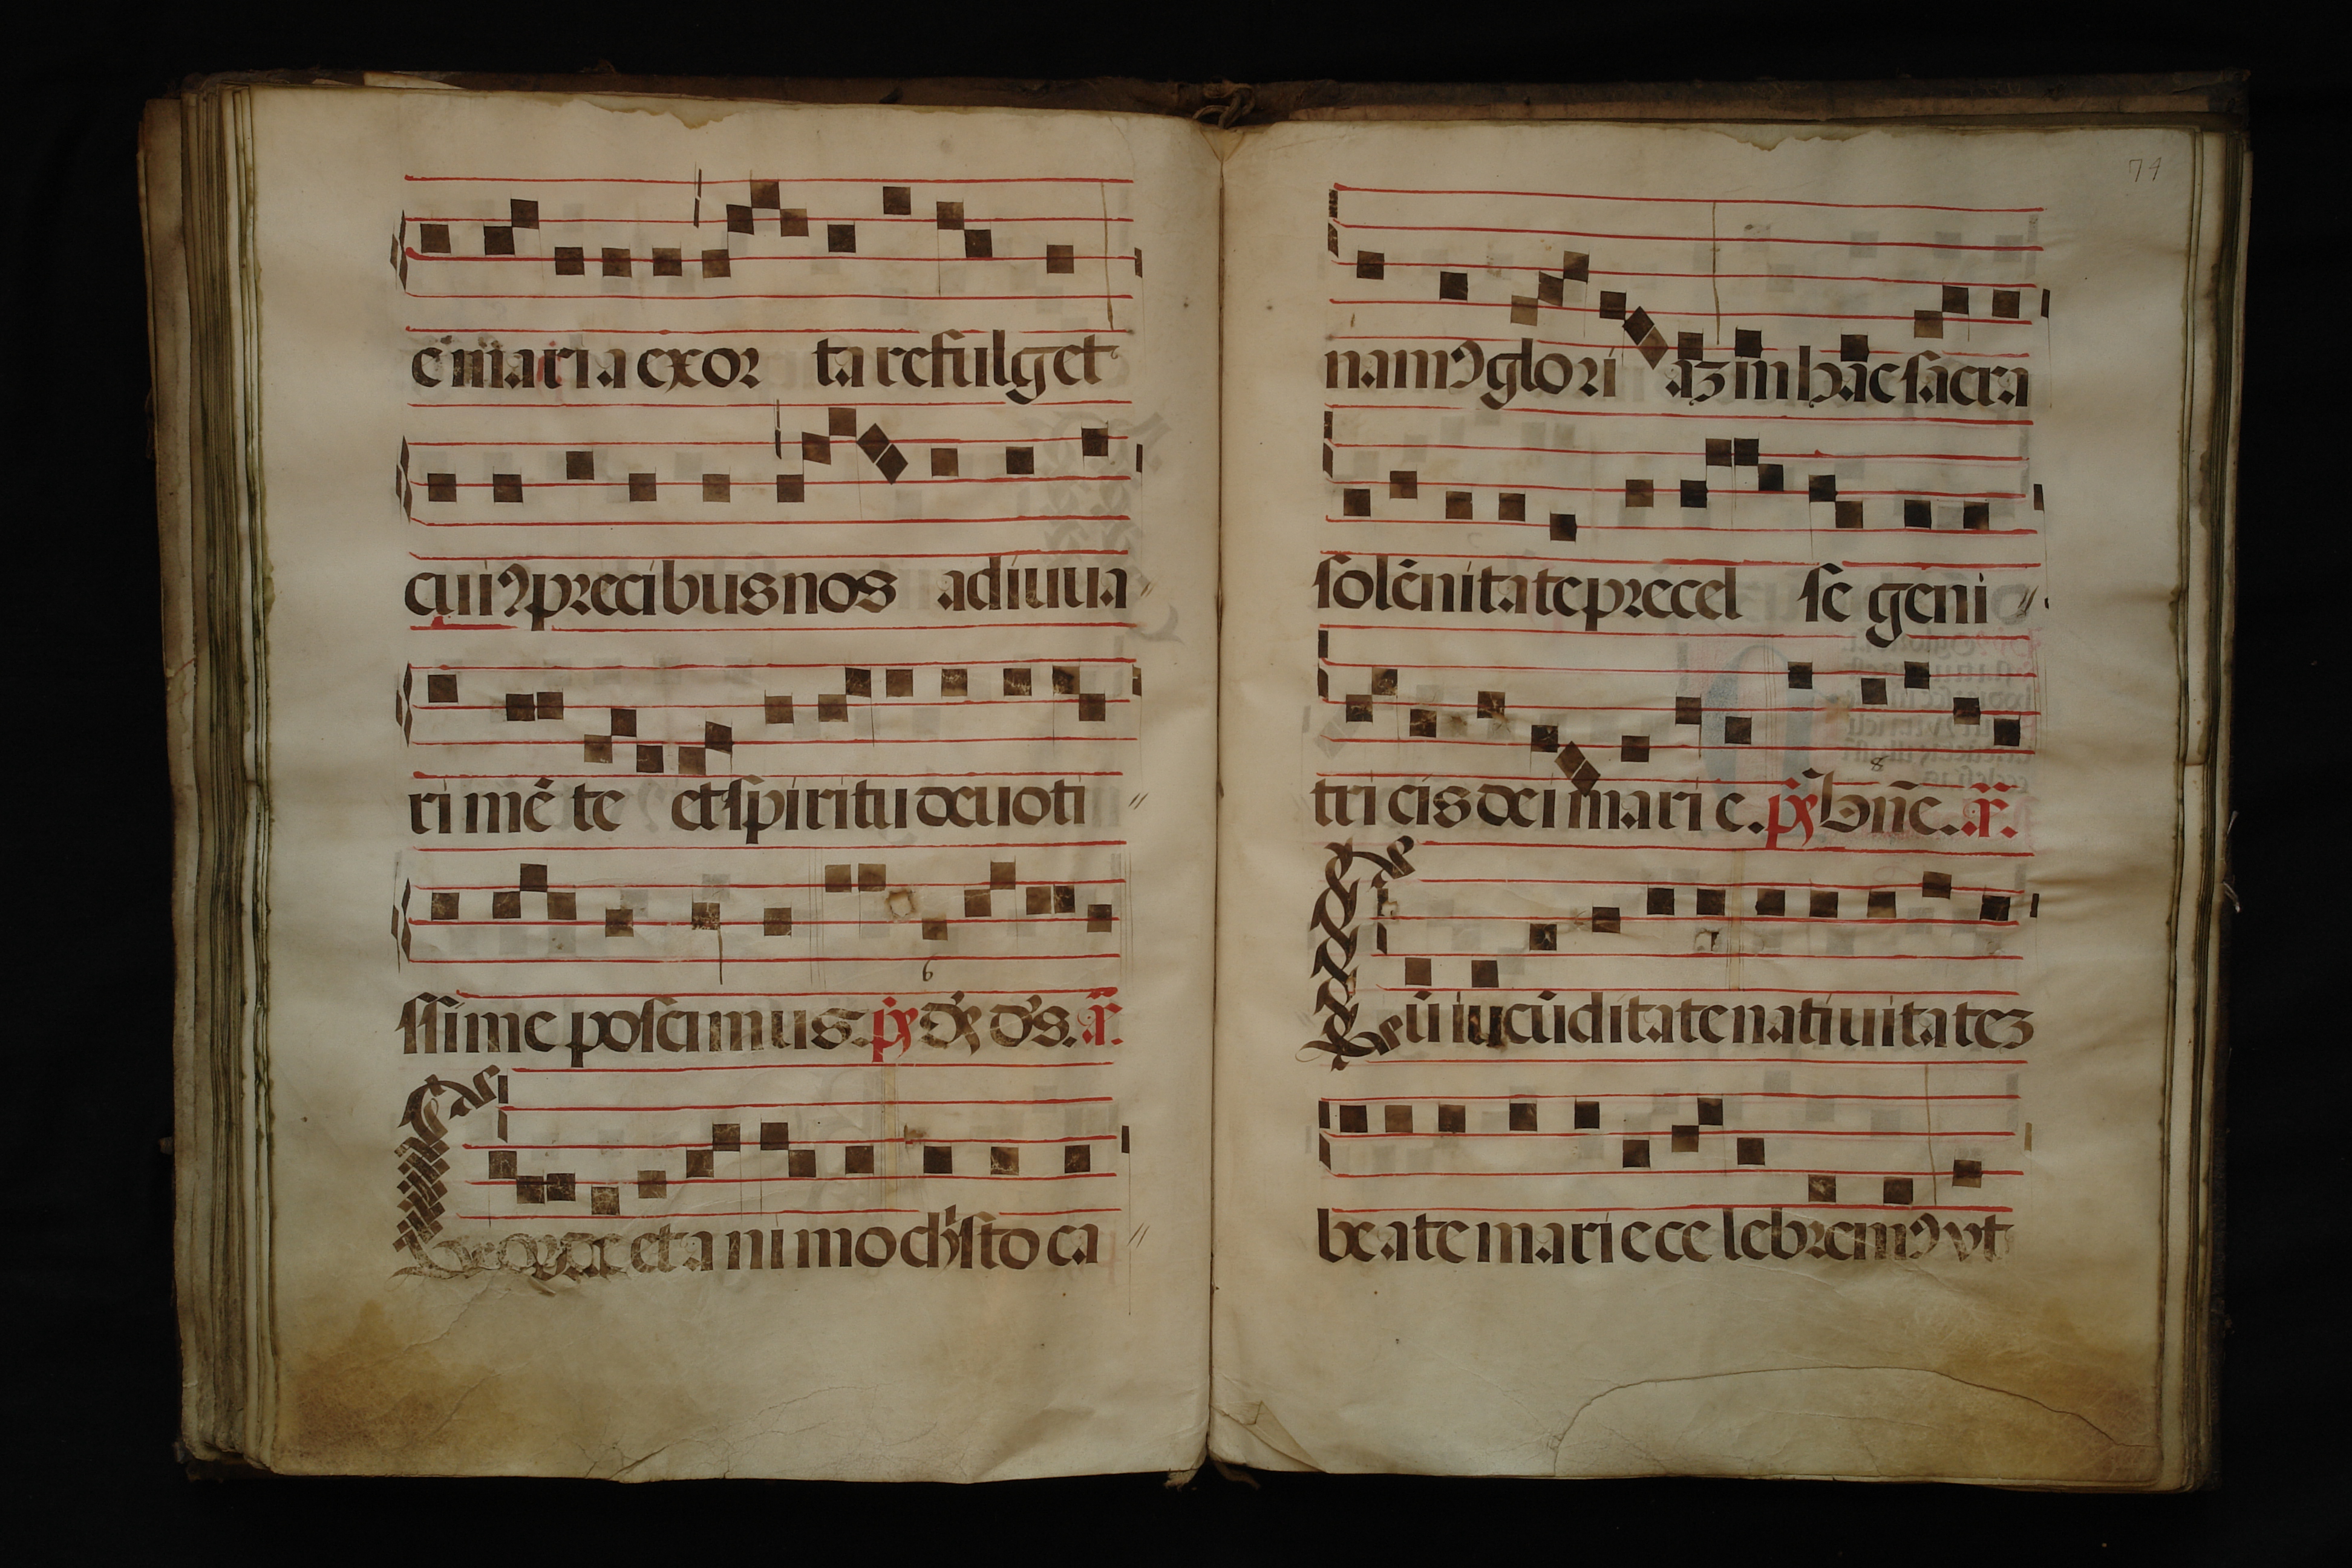 ē maria exor ta refulget
cuiꝯ precibus nos adiuua
ri mē te et spiritu deuoti
6
ssime poscimus. p̄s Ds d's. a.
Corde et animo chīsto ca
74
namꝯ glori aꝫ in hac sacra
solēnitate precel se geni
8
tri cis dei mari e. p̄s Bn̄e. a.
Cū iucūditate natiuitateꝫ
beate marie ce lebremꝯ vt